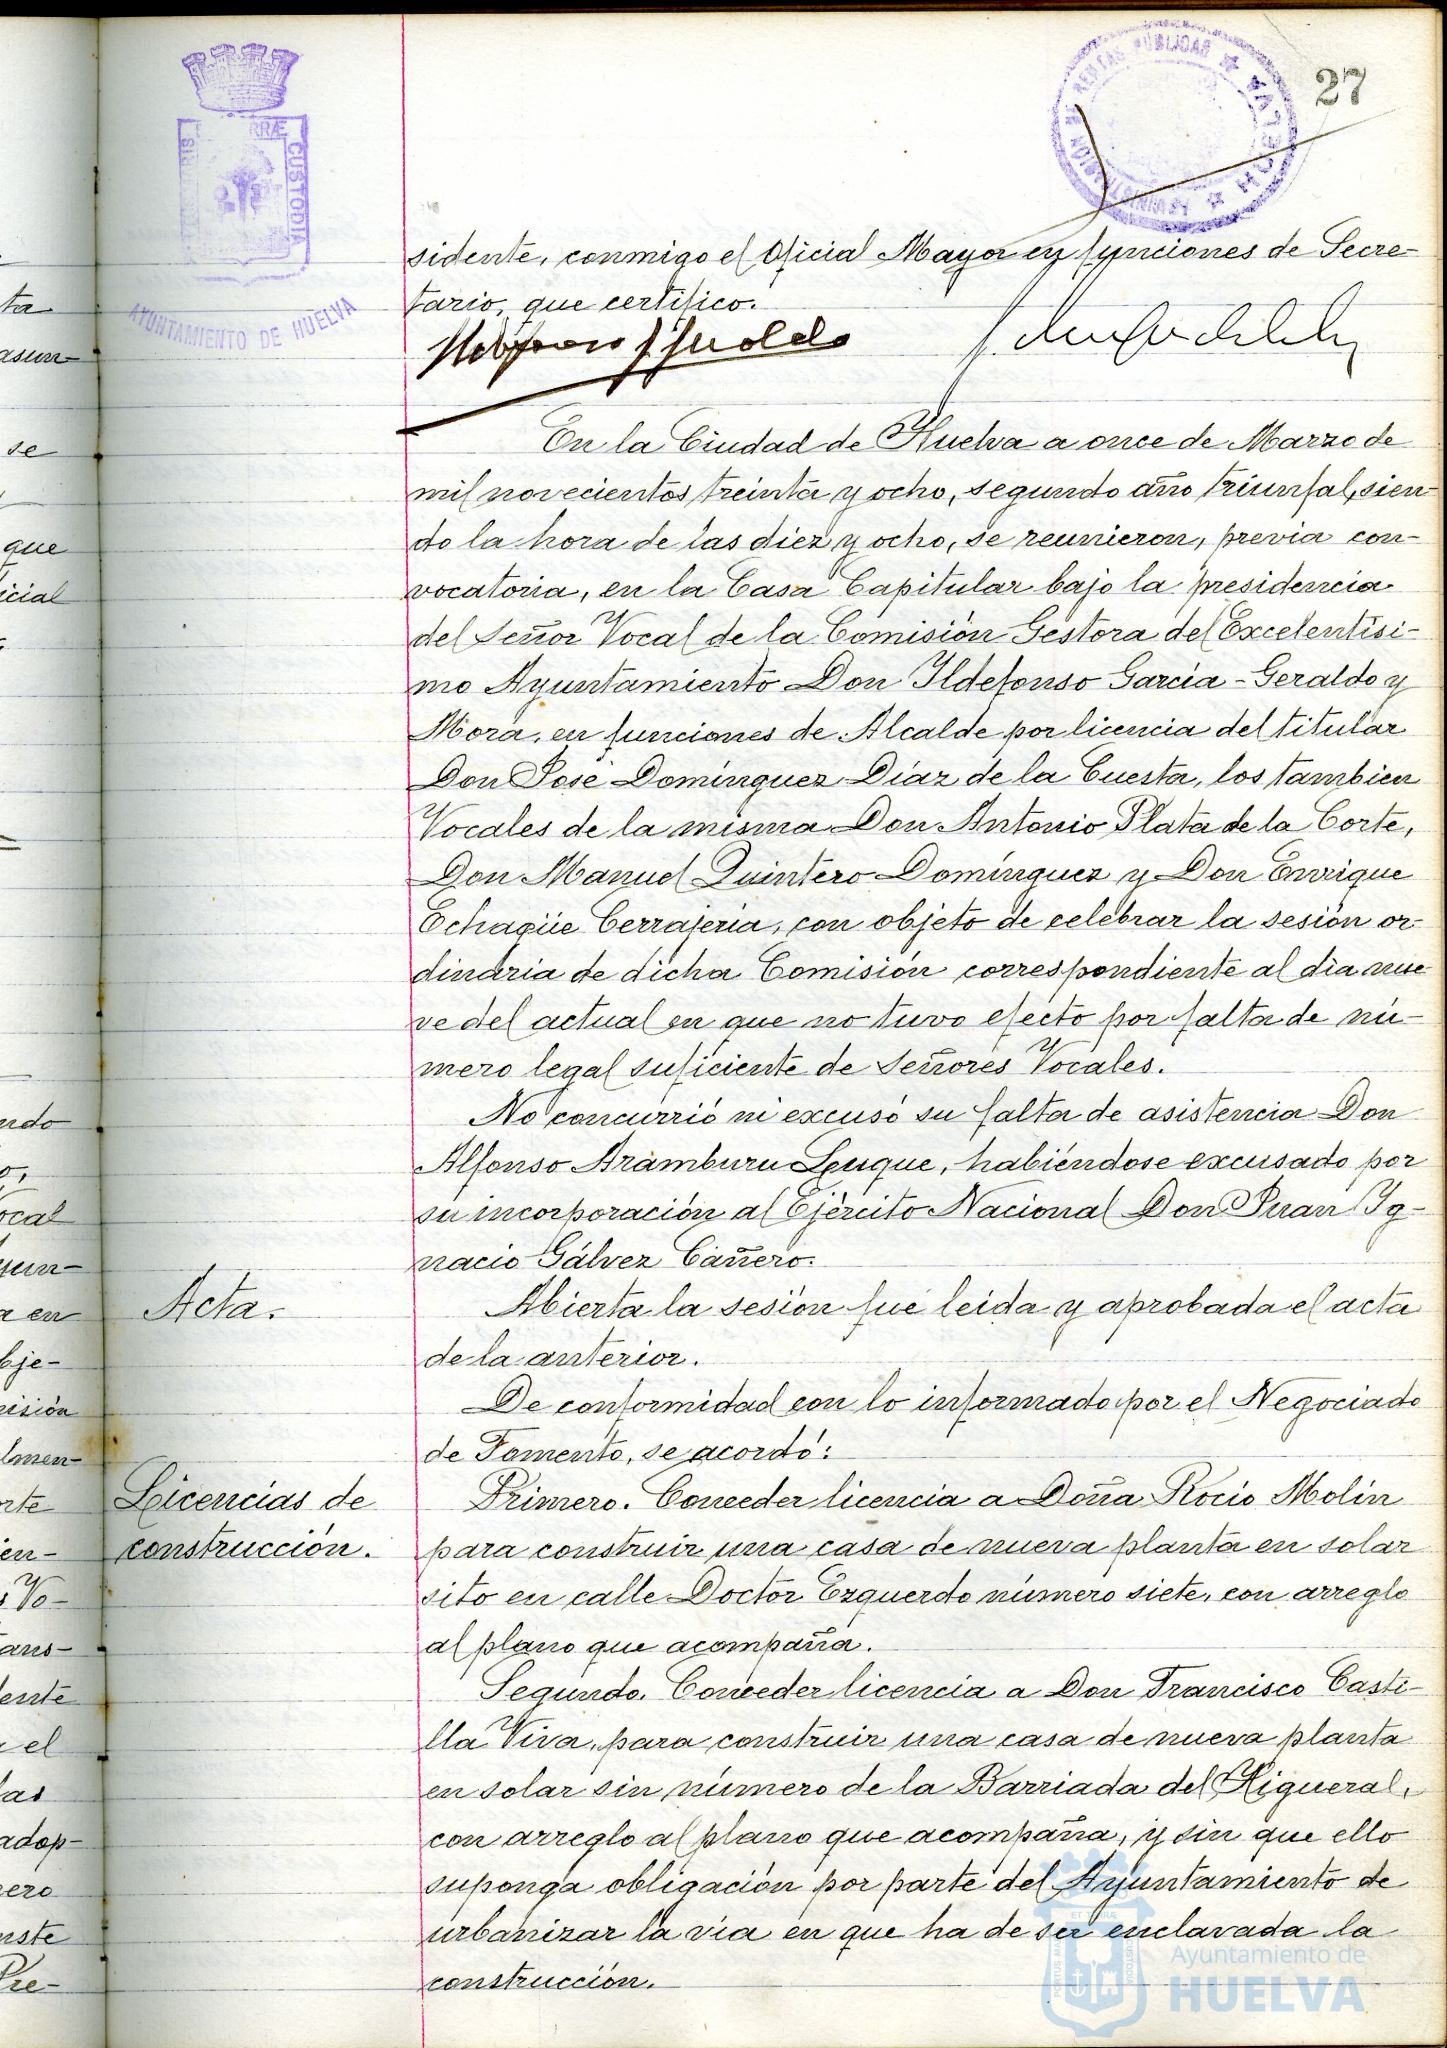 27
ADMINISTRACION DE RENTAS PUBLICAS
HUELVA
CUSTODIA
AYUNTAMIENTO DE HUELVA
sidente, conmigo el Oficial Mayor en funciones de Secre-
tario, que certifico.
En la Ciudad de Huelva a once de Marzo de
mil novecientos treinta y ocho, segundo año triunfal, sien-
do la hora de las diez y ocho, se reunieron, previa con-
vocatoria, en la Casa Capitular bajo la presidencia
del Señor Vocal de la Comisión Gestora del Excelentísi-
mo Ayuntamiento Don Ildefonso García-Geraldo y
Mora, en funciones de Alcalde por licencia del titular
Don José Domínguez Díaz de la Cuesta, los tambien
Vocales de la misma Don Antonio Plata de la Corte,
Don Manuel Quintero Domínguez y Don Enrique
Echagüe Cerrajería, con objeto de celebrar la sesión or-
dinaria de dicha Comisión correspondiente al dia nue-
ve del actual en que no tuvo efecto por falta de nú-
mero legal suficiente de Señores Vocales.
No concurrió ni excusó su falta de asistencia Don
Alfonso Aramburu Luque, habiéndose excusado por
su incorporación al Ejército Nacional Don Juan Ig-
nacio Gálvez Cañero.
Acta.
Abierta la sesión fué leida y aprobada el acta
de la anterior.
De conformidad con lo informado por el Negociado
de Fomento, se acordó:
Licencias de
construcción.
Primero. Conceder licencia a Doña Rocio Molin
para construir una casa de nueva planta en solar
sito en calle Doctor Ezquerdo número siete, con arreglo
al plano que acompaña.
Segundo. Conceder licencia a Don Francisco Casti-
lla Viva, para construir una casa de nueva planta
en solar sin número de la Barriada del Higueral,
con arreglo al plano que acompaña, y sin que ello
suponga obligación por parte del Ayuntamiento de
urbanizar la via en que ha de ser enclavada la
construcción.
Ayuntamiento de
HUELVA